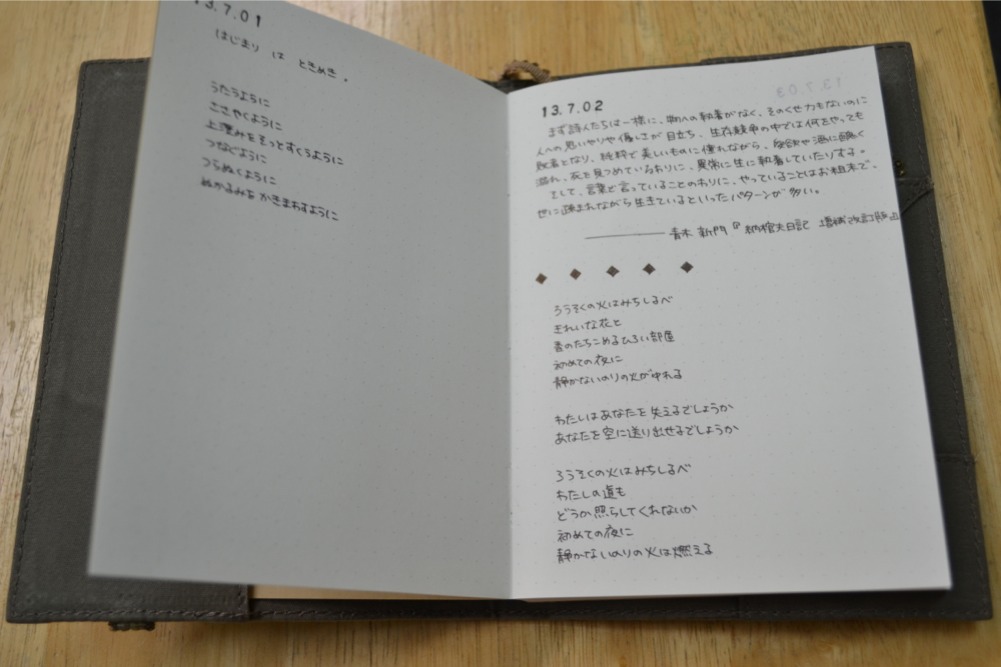 13.7.01
はじまり は ときめき 。
うたうように
ささやくように
上澄みをそっとすくうように
つなぐように
つらぬくように
ぬかるみを かきまわすように
13.7.02
まず詩人たちは一様に、物への執着がなく、そのくせ力もないのに
人への思いやりや優しさが目立ち、生存競争の中では何をやっても
敗者となり、純粋で美しいものに憧れながら、愛欲や酒に
溺れ、死を見つめているわりに、異常に生に執着していたりする。
そして、言葉で言っていることのわりに、やっていることはお粗末で、
世に疎まれながら生きているといったパターンが多い。
青木 新門『納棺夫日記 増補改訂版』
ろうそくの火はみちしるべ
きれいな花と
香のたちこめるひろい部屋
初めての夜に
静かないのりの火がゆれる
わたしはあなたを失えるでしょうか
あなたを空に送り出せるでしょうか
ろうそくの火はみちしるべ
わたしの道も
どうか照らしてくれないか
初めての夜に
静かないのりの火は燃える
13.7.03